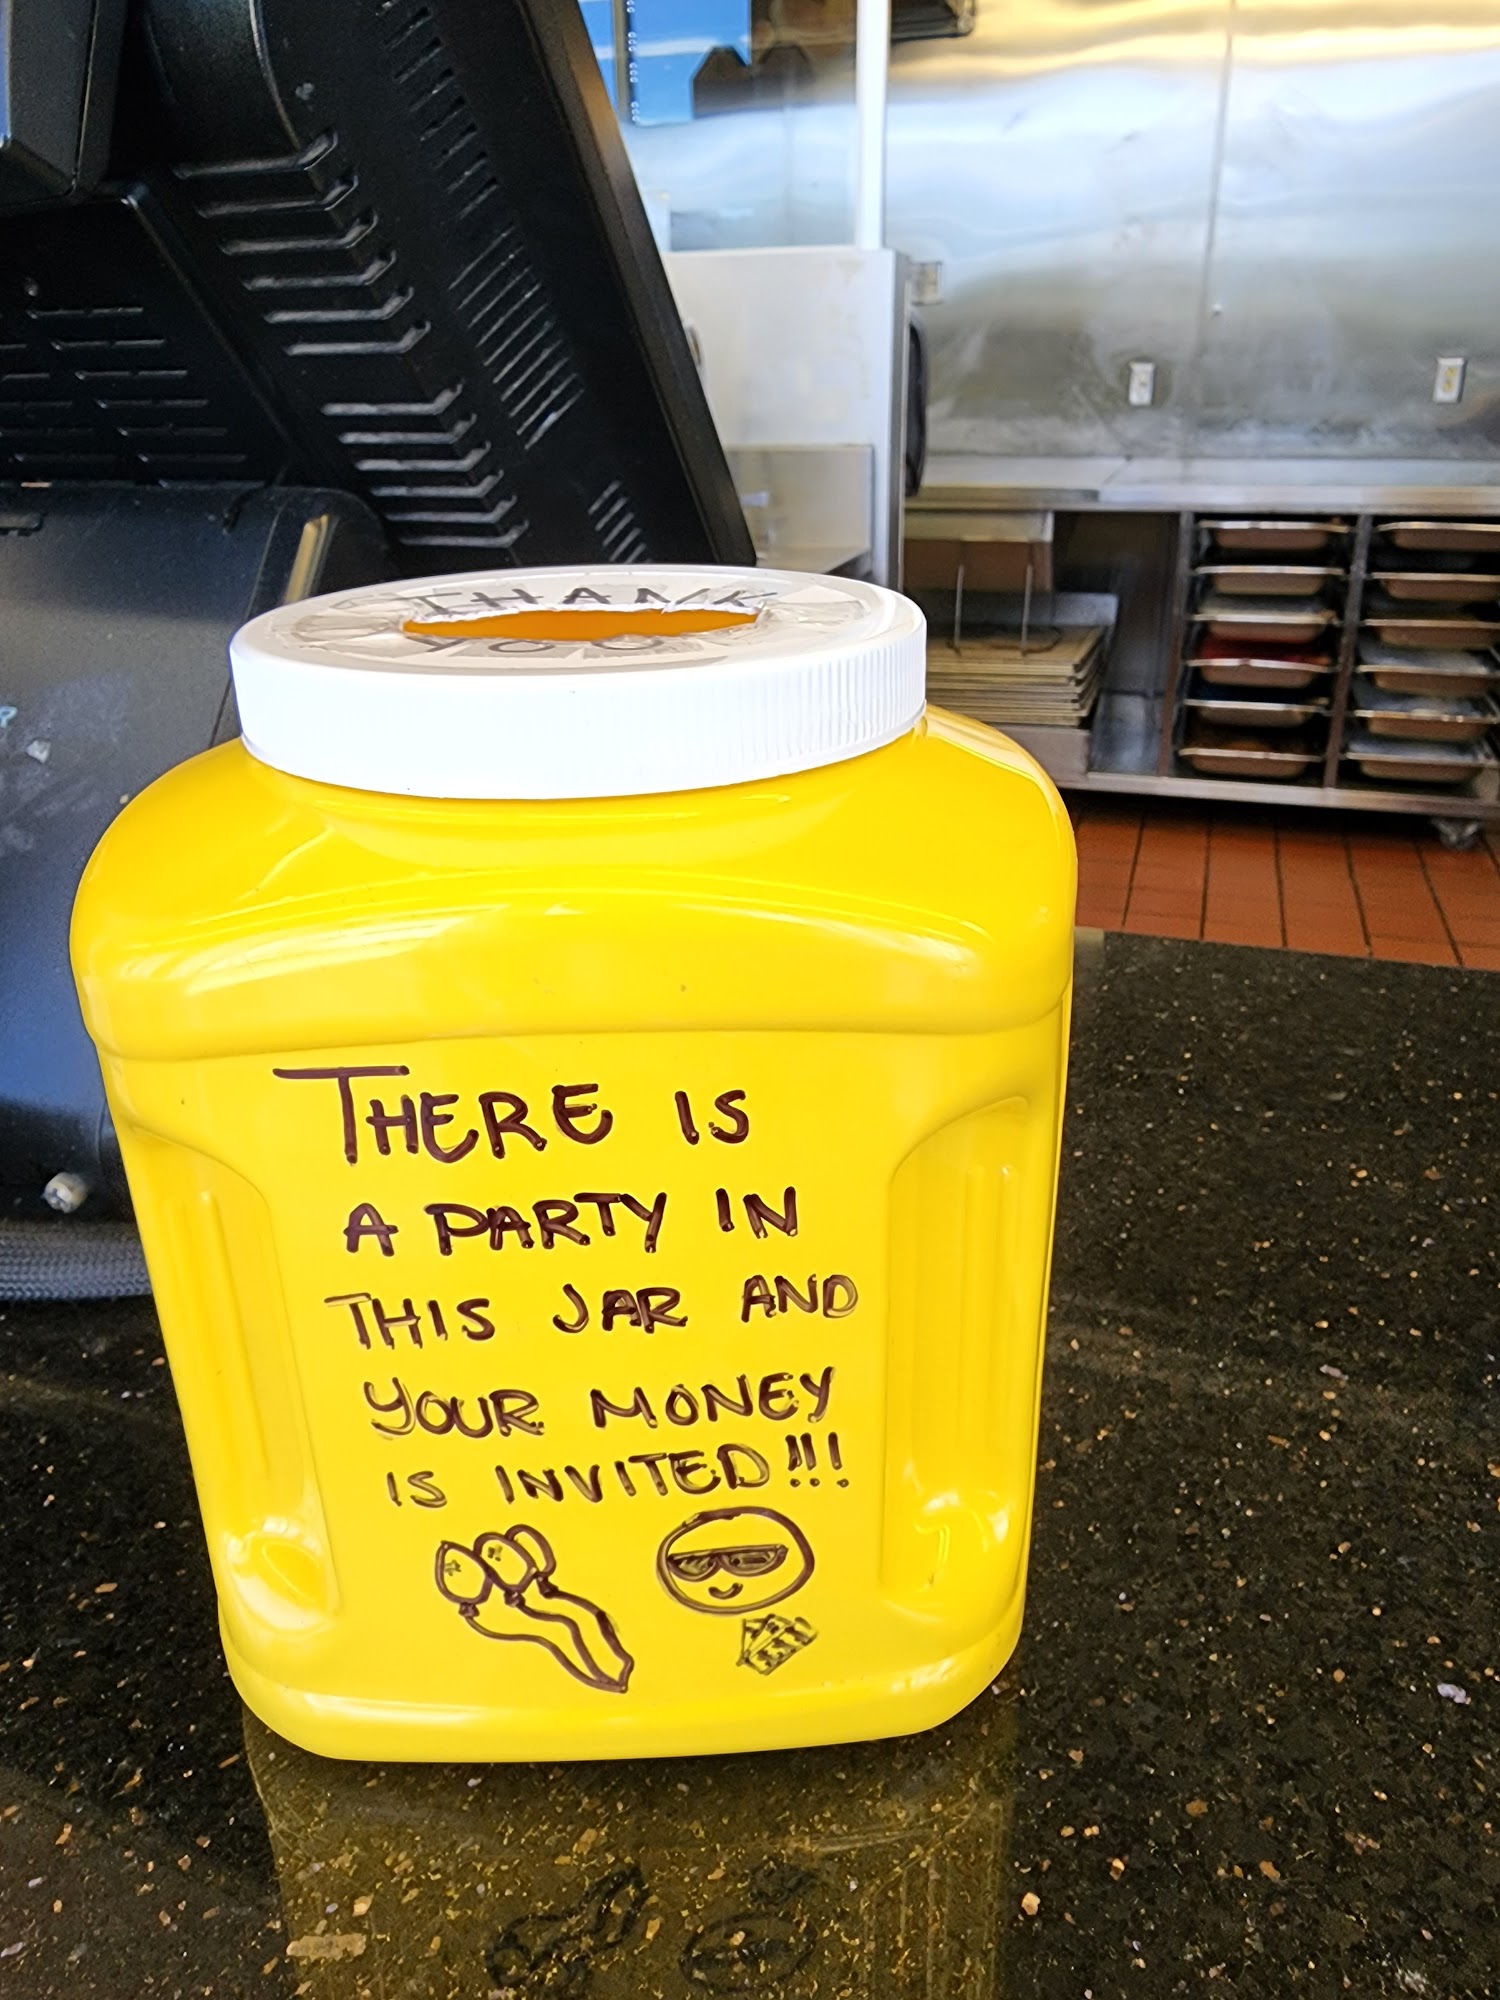 THANK
YOU
THERE IS
A PARTY IN
THIS JAR AND
YOUR MONEY
IS INVITED!!!